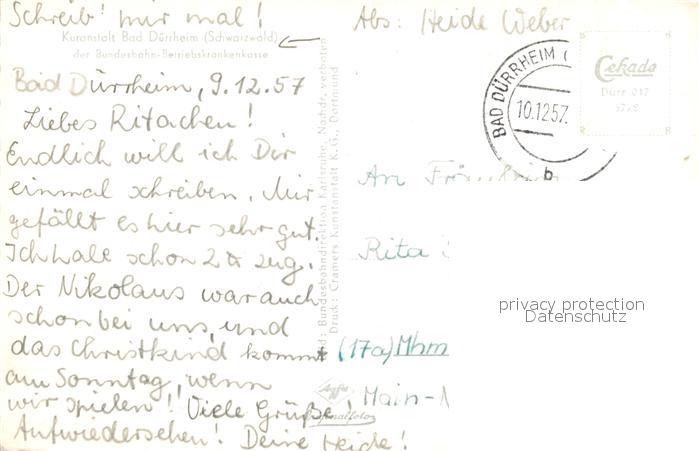 Schreib' mir mal!
Kuranstalt Bad Dürrheim (Schwarzwald)
der Bundesbahn-Betriebskrankenkasse
Bad Dürrheim, 9.12.57
Liebes Ritachen!
Endlich will ich Dir
einmal schreiben. Mir
gefällt es hier sehr gut.
Ich habe schon 2 zug.
Der Nikolaus war auch
schon bei uns, und
das Christkind kommt
am Sonntag, wenn
wir spielen! Viele Grüße
Aufwiedersehen! Deine Heide!
Bild: Bundesbahndirektion Karlsruhe, Nachdr. verboten
Druck: Cramers Kunstanstalt K.G., Dortmund
Abs: Heide Weber
BAD DÜRRHEIM (
10.12.57.
b
Cekade
Dürr 017
An Fräulein
Rita
(17a) Mhm
Main-
Agfa
Originalfoto
privacy protection
Datenschutz